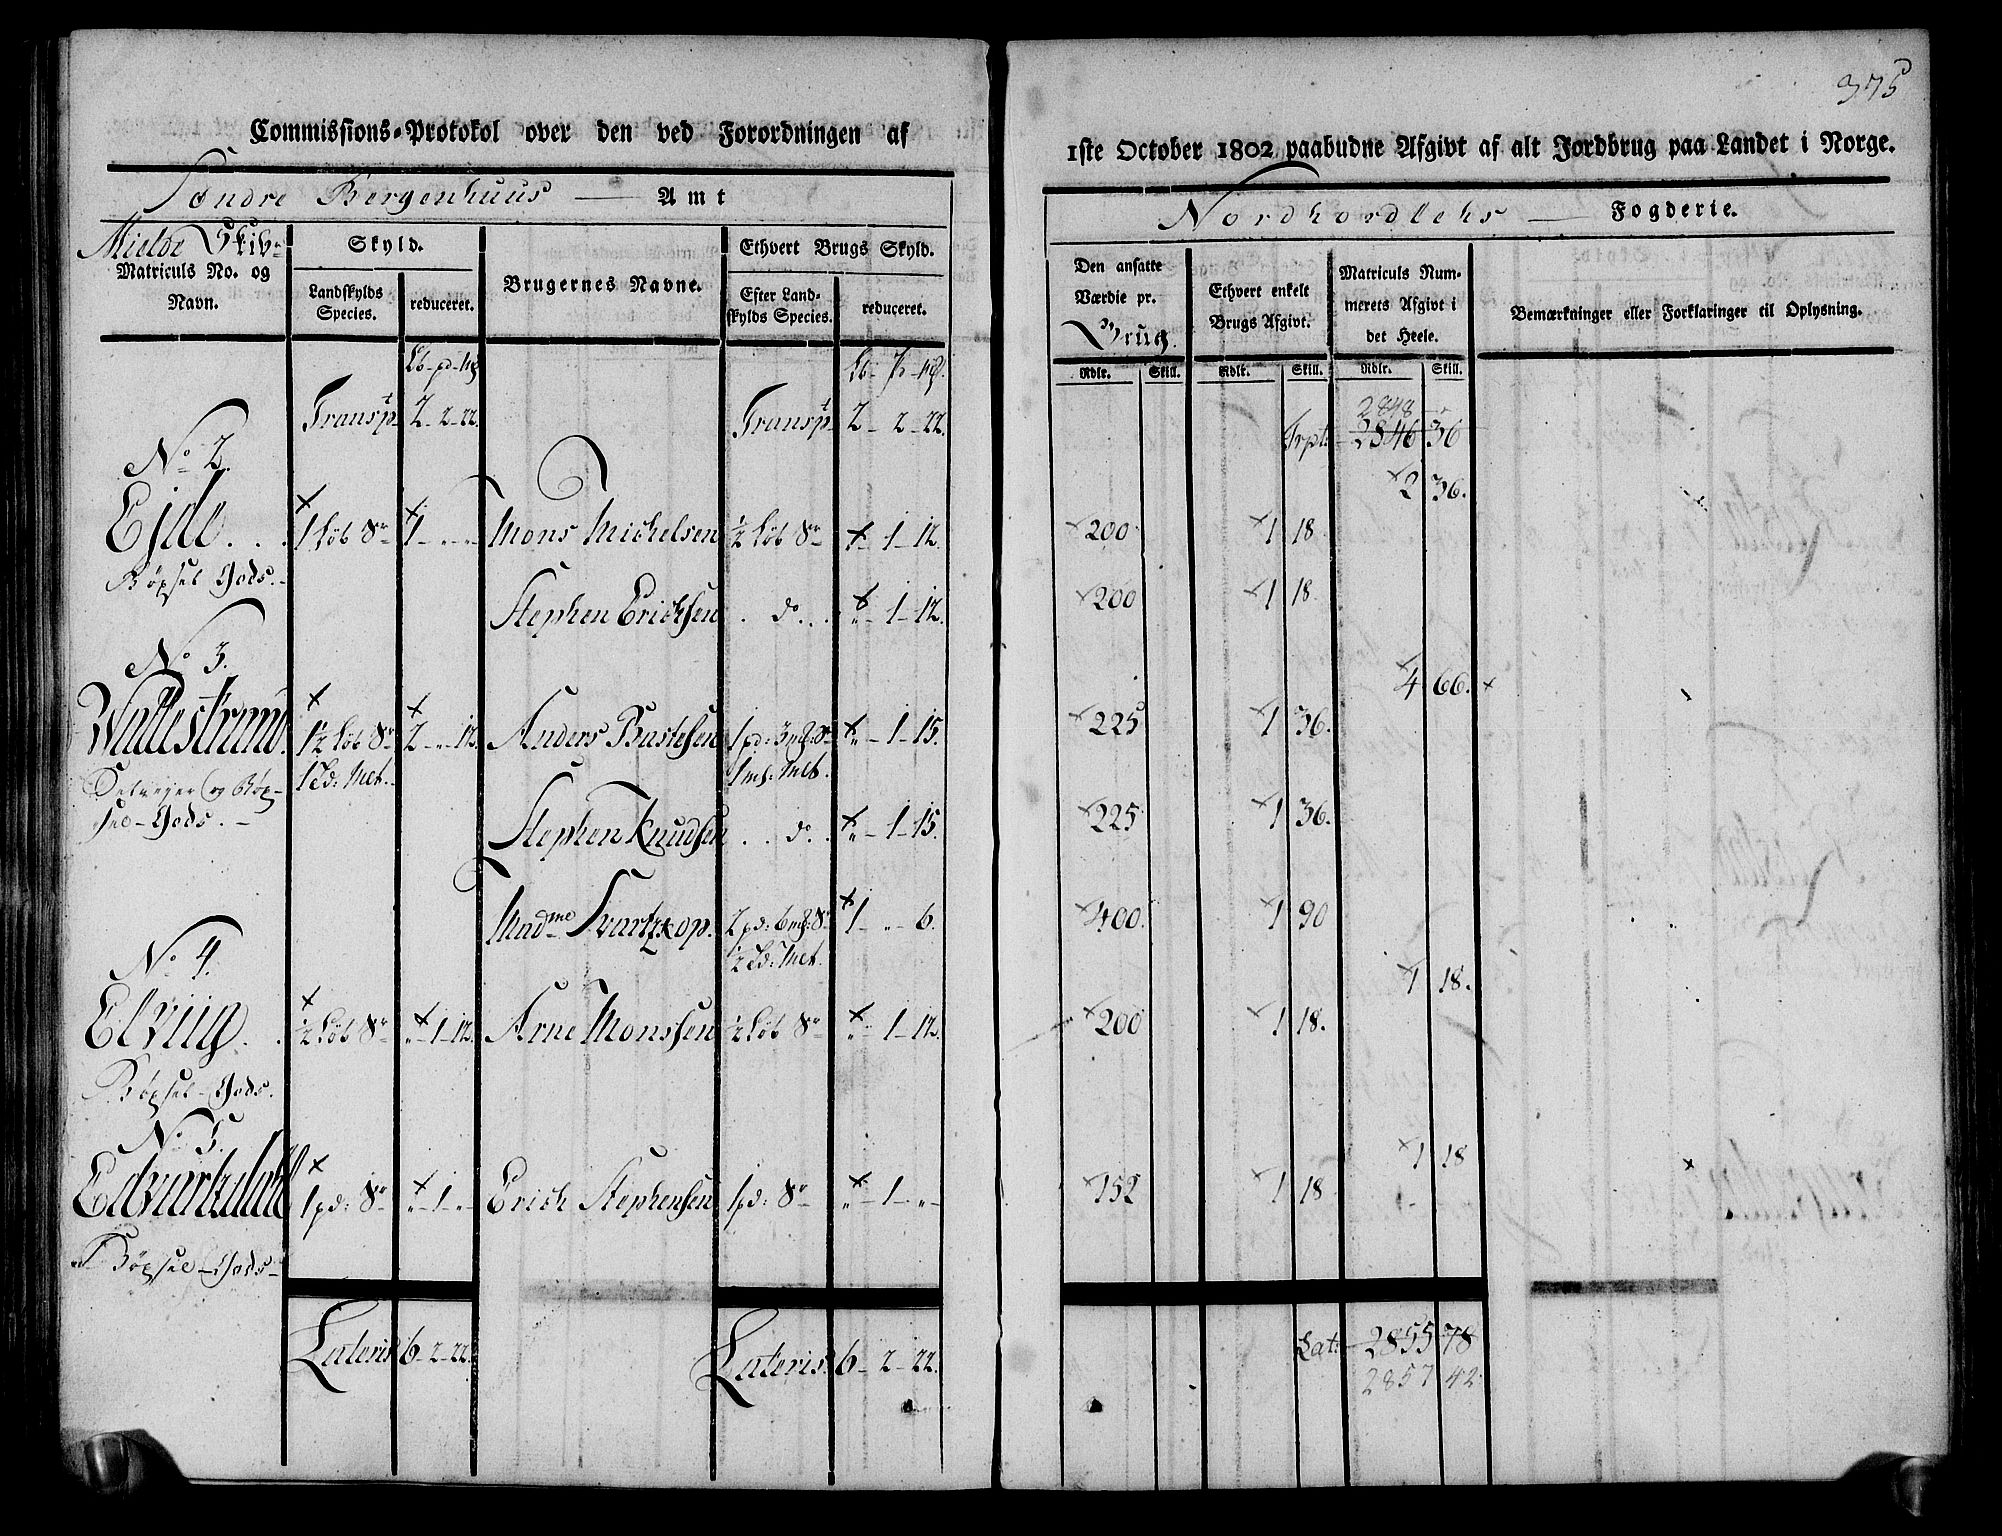 375
Commissions-Protokol over den ved Forordningen af
1ste October 1802 paabudne Afgivt af alt Jordbrug paa Landet i Norge.
Søndre Bergenhuus — Amt
Nordhordlehs — Fogderie.
Mielde Skibr
Matriculs No. og Navn.
Skyld.
Landskylds Species.
reduceret.
Brugernes Navne.
Ethvert Brugs Skyld.
Efter Landskylds Species.
reduceret.
Den ansatte Værdie pr. Brug.
Ethvert enkelt Brugs Afgivt.
Matriculs Nummerets Afgivt i det Heele.
Bemærkninger eller Forklaringer til Oplysning.
Rdlr. Skill. Rdlr. Skill. Rdlr. Skill.
Transpt 2-2-22. Transpt 2-2-22. Trpt: 2846 36
2848
No 2. 2 36.
Ejde 1 Løb Sr 1 - „ - „ Mons Michelsen ½ Løb Sr „ - 1 - 12. 200 1 18.
Bøxsel Gods.
Stephen Erichsen do „ - 1 - 12. 200 1 18.
No 3. 4 66.
Wallestrand 1½ Løb Sr 2 - „ - 12. Anders Bastesen 1 pd: 3 mf: Sr „ - 1 - 15. 225 1 36.
1 Td: Melt. 1 mf: Melt.
Selveyer og Bøxsel-Gods.
Stephen Knudsen do „ - 1 - 15. 225 1 36.
Madme Svartzkop. 2 pd: 6 mf: Sr 1 - „ - 6. 400 1 90
½ Td: Melt.
No 4. 1 18.
Elviig ½ Løb Sr „ - 1 - 12. Arne Monssen ½ Løb Sr „ - 1 - 12. 200 1 18.
Bøxsel-Gods.
No 5. 1 18
1 pd: Sr „ - 1 - „ Erich Stephensen 1 pd: Sr „ - 1 - „ 152 1 18.
Bøxsel-Gods
Lateris 6-2-22. Lateris 6-2-22. Lat: 2855 78
2857 42.